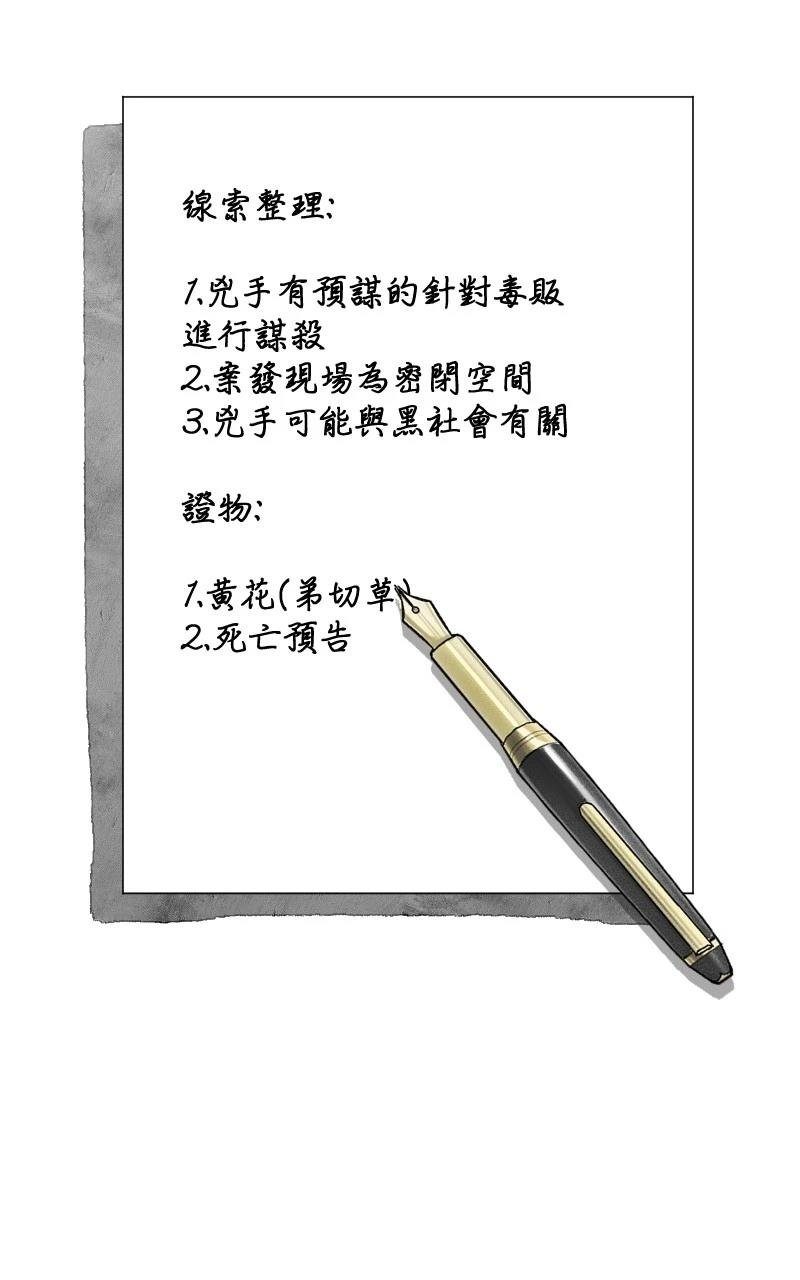 线索整理:
1.兇手有預謀的針對毒販
進行謀殺
2.案發現場為密閉空間
3.兇手可能與黑社會有關
證物:
1.黄花(弟切草)
2.死亡預告